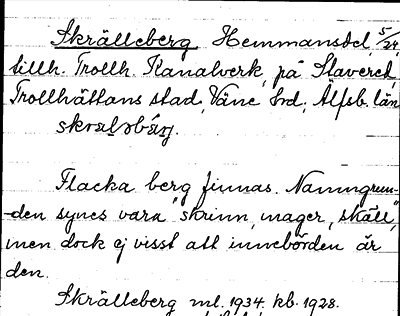 Skrälleberg Hemmansdel, 5/24,
tillh. Trollh. Kanalverk, på Stavered,
Trollhättans stad, Väne hrd, Älfsb. län
Flacka berg finnas. Namngrun-
-den synes vara "skrinn, mager, skäll",
men dock ej visst att innebörden är
den.
Skrälleberg ml. 1934. kb. 1928.